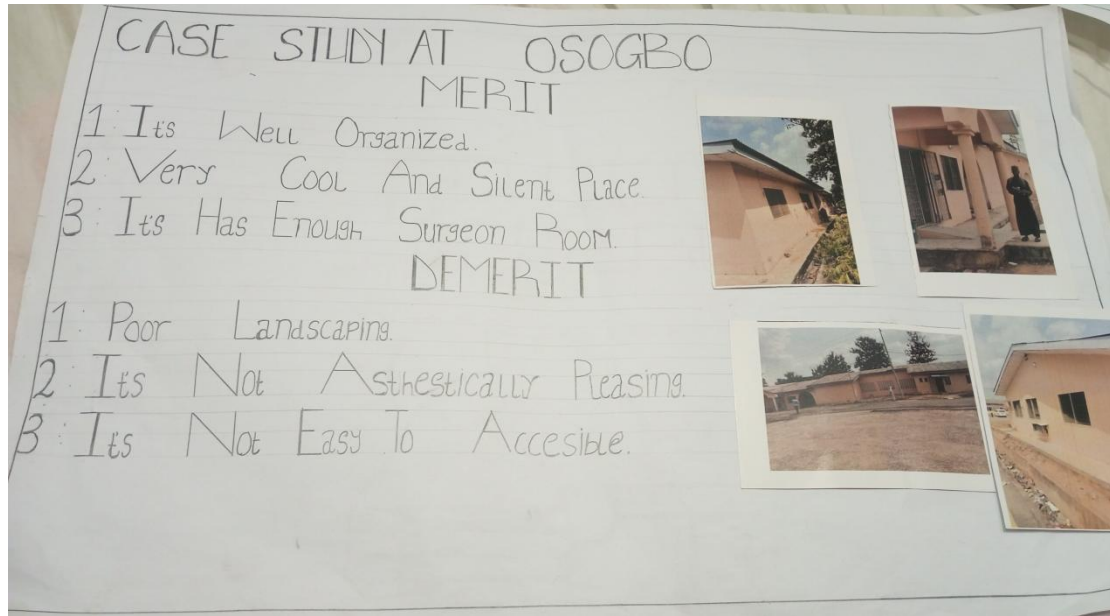 CASE STUDY AT OSOGBO
MERIT
1: Its Well Organized.
2: Very Cool And Silent Place.
3: Its Has Enough Surgeon Room.
DEMERIT
1: Poor Landscaping.
2: Its Not Asthestically Pleasing.
3: Its Not Easy To Accesible.